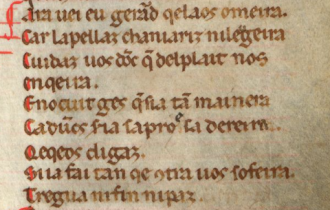 Fara uei eu gerad qelaos omeira.
Car lapellaz chantariz nilegeira
Cuidaz uos doc q̄ delplait nos
enqeira.
Enocuit ges q̄ sia tā mainera
Ca dūcs sia sa pro sa dereira.
Qeqeos digaz.
Si ia fai tan qe ꝯtra uos sofeira.
Tregua nifin nipaz.